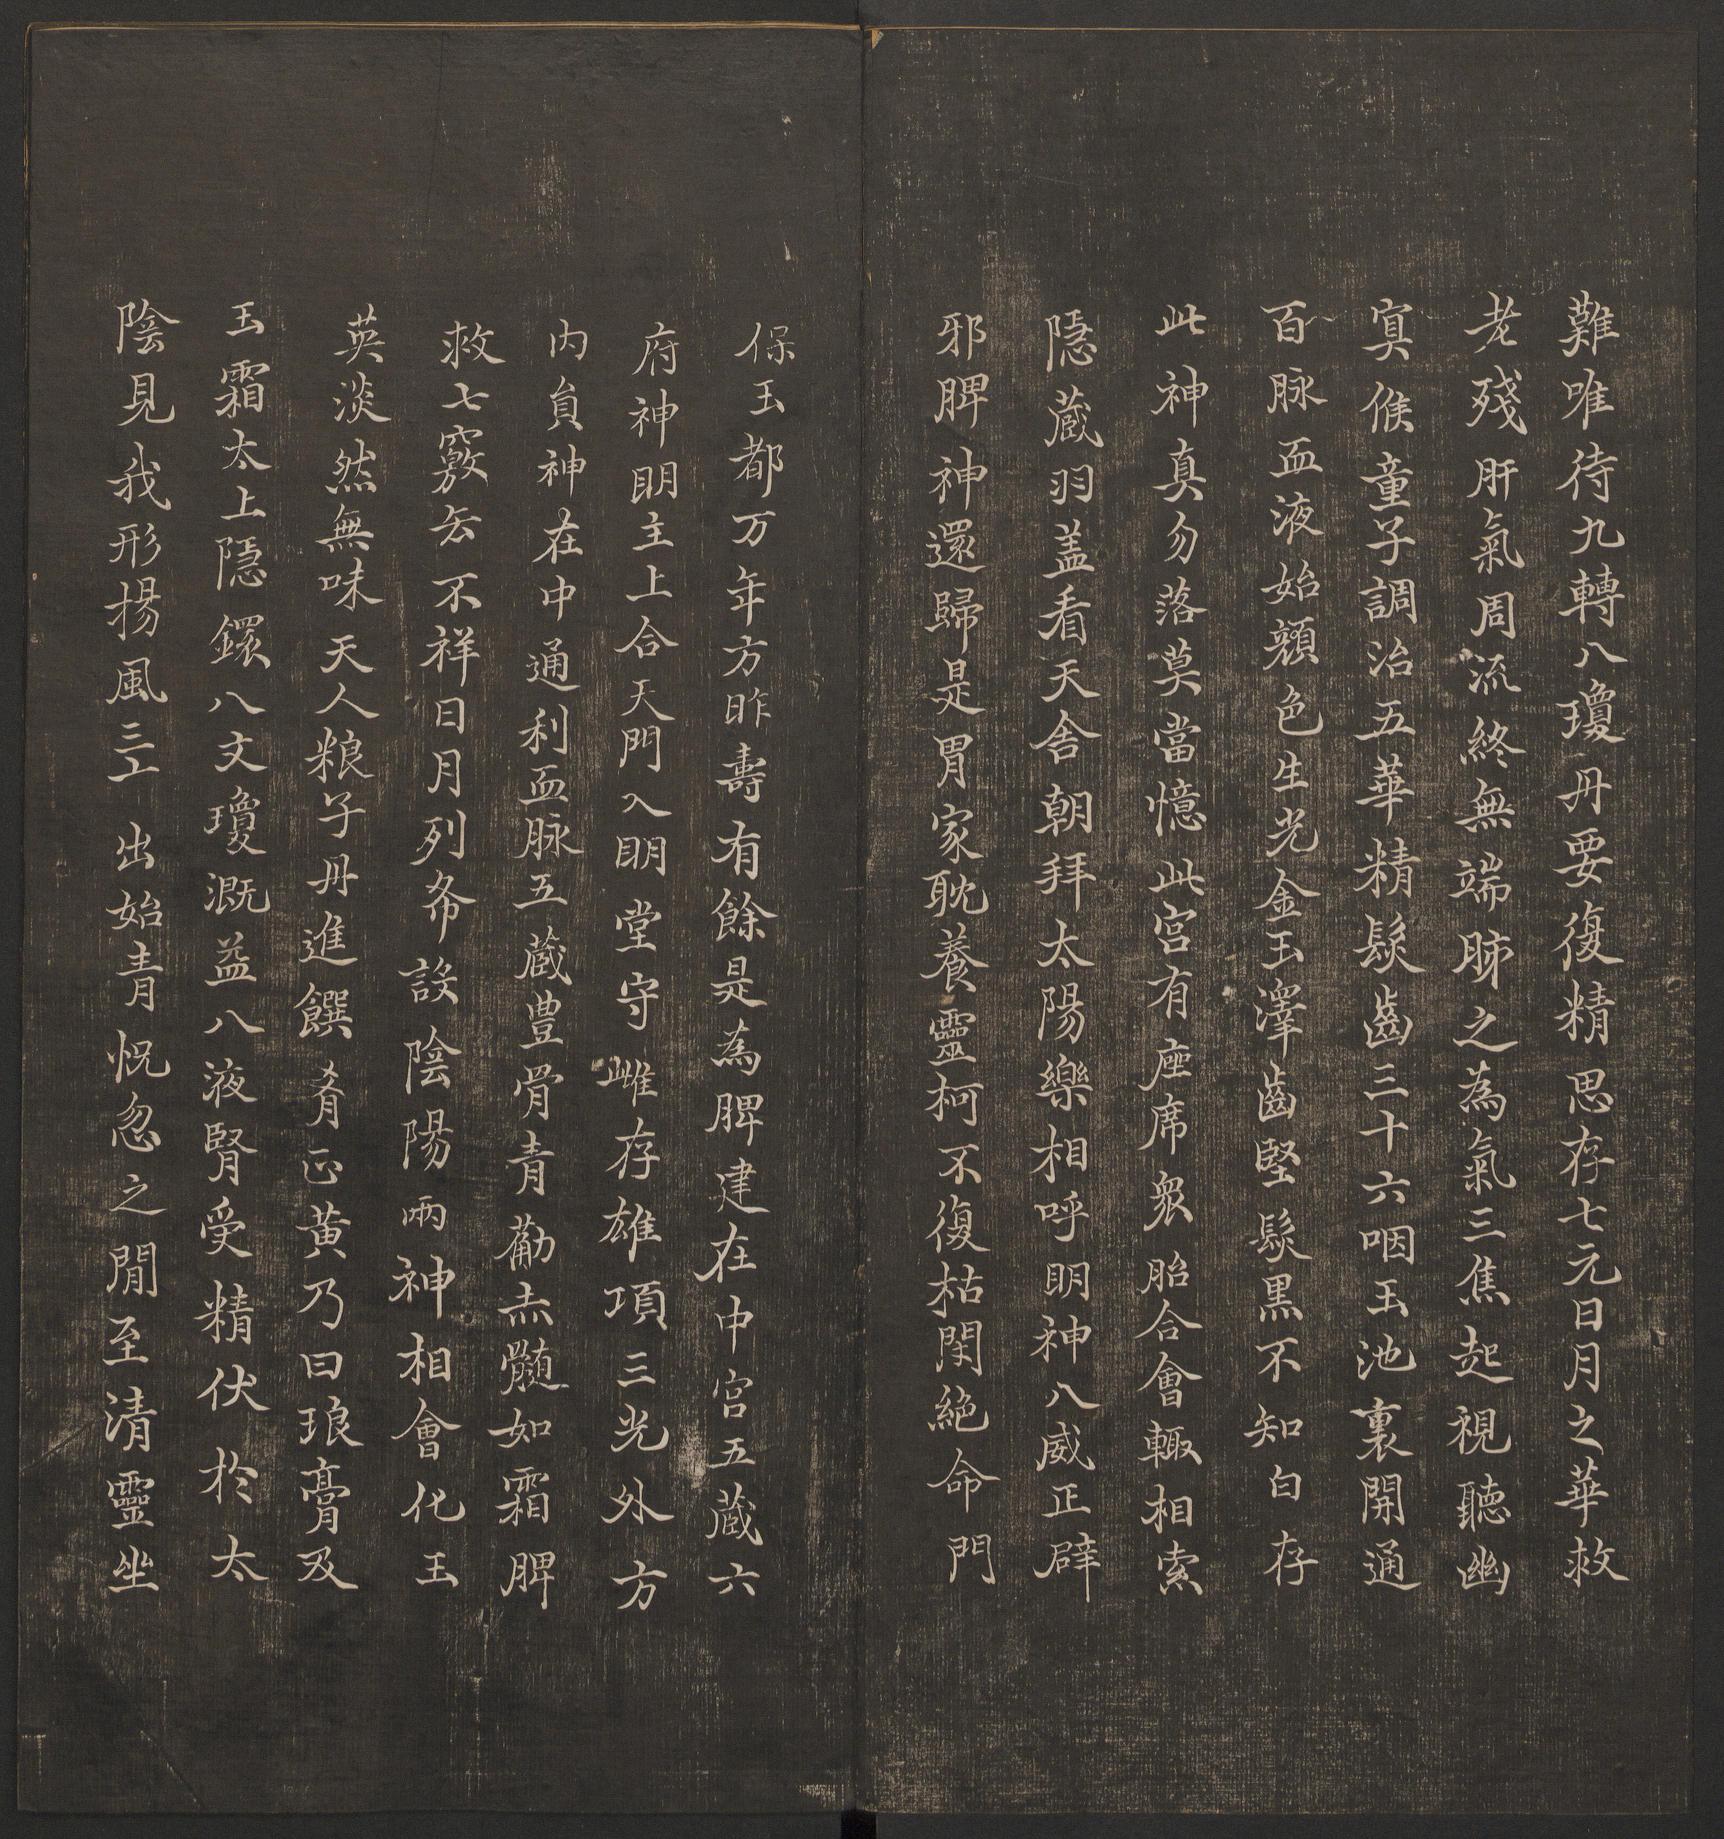 難唯待九轉八瓊丹要復精思存七元日月之華救
老殘肝氣周流終無端肺之為氣三焦起視聽幽
寘候童子調治五華精髮齒三十六咽玉池裏開通
百脉血液始顏色生光金玉澤齒堅髮黒不知白存
此神真勿落莫當憶此宮有座席衆胎合會輙相索
隱蔵羽盖看天舍朝拜太陽樂相呼明神八威正辟
邪脾神還歸是胃家耽養靈柯不復枯閇絶命門
保玉都万年方昨壽有餘是為脾建在中宮五蔵六
府神明主上合天門入明堂守雌存雄項三光外方
内負神在中通利血脉五蔵豊骨青勸赤髓如霜脾
救七竅去不祥日月列布設陰陽兩神相會化玉
英淡然無味天人粮子丹進饌肴正黄乃曰琅膏及
玉霜太上隱鐶八文瓊溉益八液腎受精伏於太
陰見我形揚風三𠀍出始青怳忽之間至清靈坐